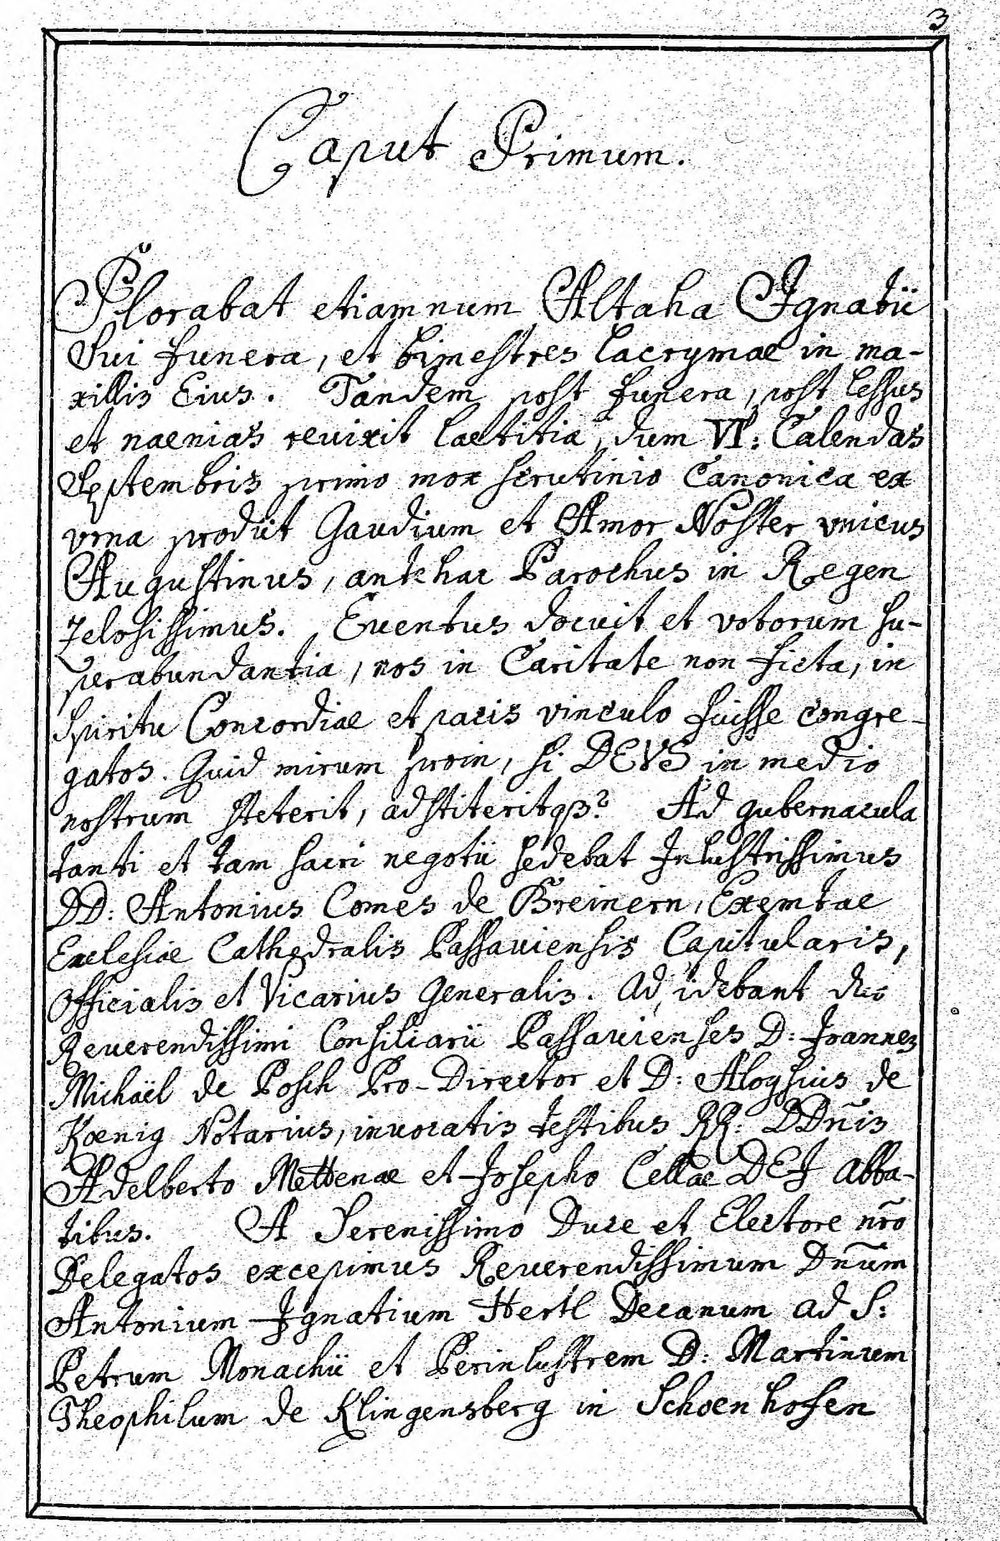 3
Caput Primum.
Plorabat etiamnum Altaha Ignatii
Sui funera, et bimestres lacrymae in ma-
xillis Eius. Tandem post funera, post lessus
et naenias reuixit laetitia, dum VI: Calendas
Septembris primo mox scrutinio Canonica ex
vrna prodiit Gaudium et Amor Noster vnicus
Augustinus, ante hac Parochus in Regen
Zelosissimus. Euentus docuit et votorum su-
perabundantia, nos in Caritate non ficta, in
Spiritu Concordiae et pacis vinculo fuisse congre-
gatos. Quid mirum proin, si DEVS in medio
nostrum steterit, adstiteritqß? Ad gubernacula
tanti et tam sacri negotii sedebat Inlustrissimus
DD: Antonius Comes de Breinern, Exemtae
Ecclesiae Cathedralis Passauiensis Capitularis,
Officialis et Vicarius Generalis. Adsidebant duo
Reuerendissimi Consiliarii Passauienses D: Joannes
Michaël de Posch Pro-Director et D: Aloysius de
Kœnig Notarius, inuocatis testibus RR: DDnis
Adelberto Mettenae et Josepho Cellae DEI Abba-
tibus. A Serenissimo Duce et Electore nro
Delegatos excepimus Reuerendissimum Dnum
Antonium Ignatium Hertl Decanum ad S:
Petrum Monachii et Perinlustrem D: Martinum
Theophilum de Klingensberg in Schoenhofen